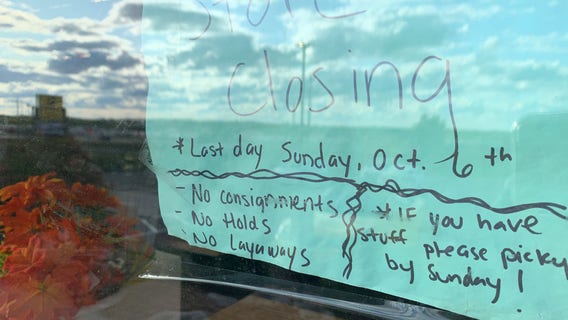 Store
Closing
*Last day Sunday, Oct. 6th
- No consignments
- No Holds
- No Layaways
*IF you have
stuff please picky
by Sunday!